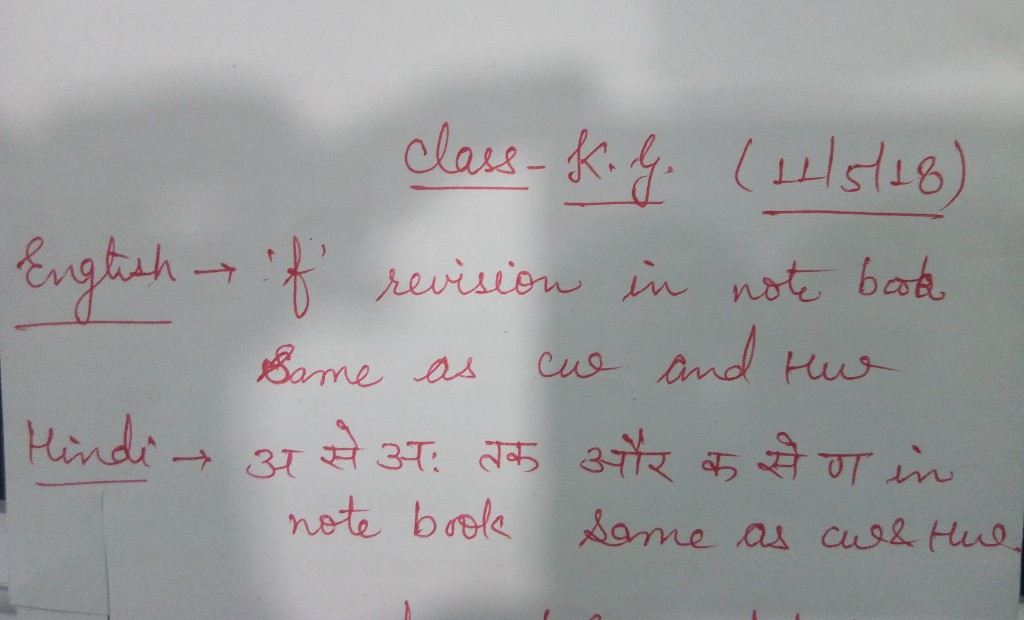 Class - K.G. (11/5/18)
English → 'f' revision in note book
Same as cw and Hw
Hindi → अ से अः तक और क से ण in
note book same as cw & Hw.